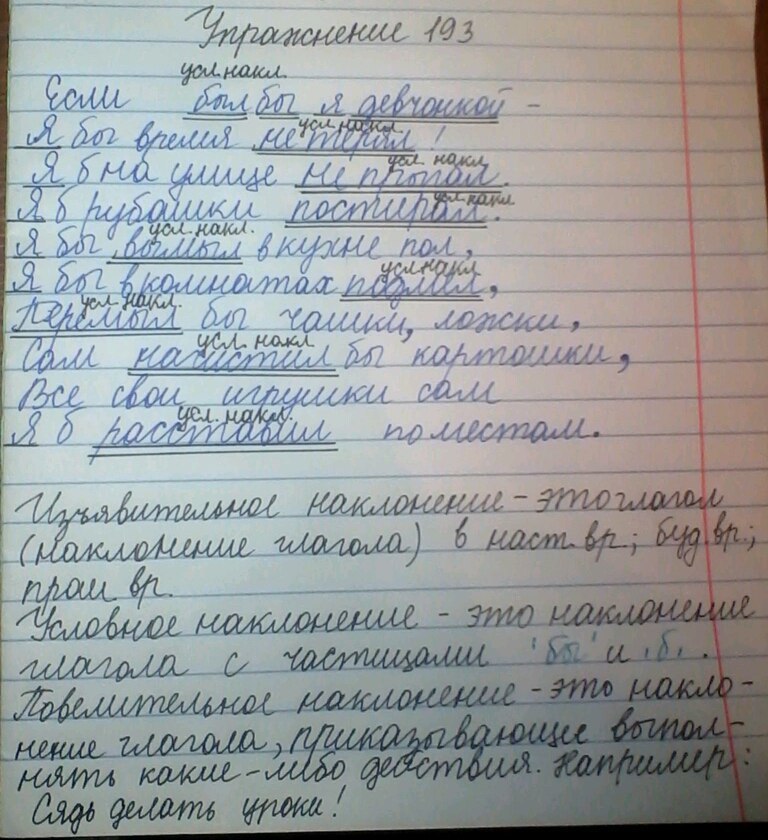 Упражнение 193
усл.накл.
Если был бы я девчонкой -
усл накл.
Я бы время не терял!
усл накл.
Я б на улице не пропал.
усл накл.
Я б рубашки постирал.
усл.накл.
Я бы вымыл в кухне пол,
усл накл
Я бы в комнатах подмёл,
усл накл.
Перемыл бы чашки, ложки,
усл. накл.
Сам начистил бы картошки,
Все свои игрушки сам
усл. накл.
Я б расставил по местам.
Изъявительное наклонение - это глагол
(наклонение глагола) в наст вр; буд вр.;
прош вр.
Условное наклонение - это наклонение
глагола с частицами "бы" и "б".
Повелительное наклонение - это накло-
нение глагола, приказывающие выпол-
нять какие-либо действия. Например:
Сядь делать уроки!